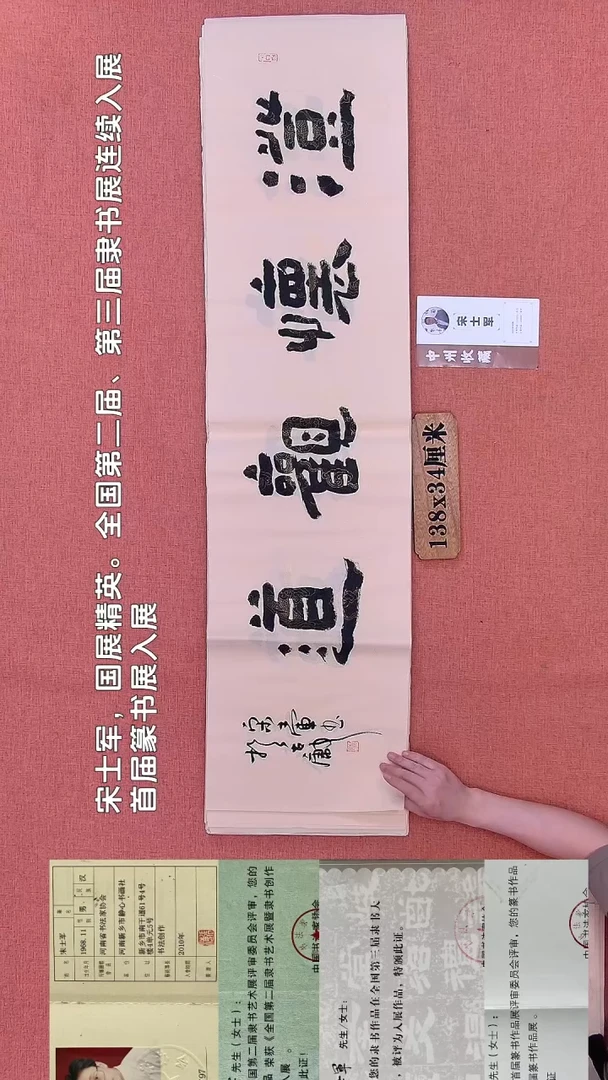 宋士军，国展精英。全国第二届、第三届隶书展连续入展
首届篆书展入展
澄懷觀道
宋士軍
中州收藏
宋士军
138x34厘米
宋士军
1968.11
汉
河南省书法家协会
河南新乡市静心书画社
新乡市南干道61号4号
楼4单元5号
书法创作
2010年
先生（女士）：
国第二届隶书艺术展评审委员会评审，您的
荣获《全国第二届隶书艺术展暨隶书创作
入展。
此证！
先生/女士：
您的隶书作品在全国第三届隶书大
被评为入展作品，特颁此证。
先生（女士）：
首届篆书作品展评审委员会评审，您的篆书作品
届篆书作品展。